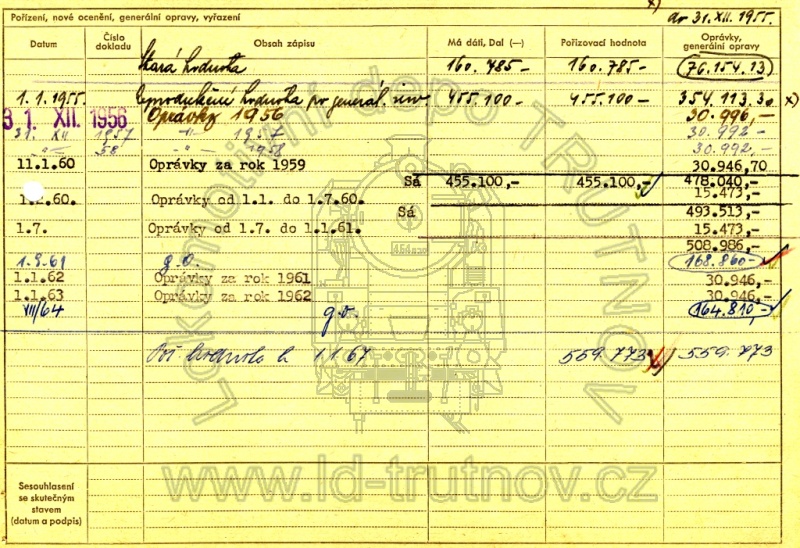 x)
Pořízení, nové ocenění, generální opravy, vyřazení
do 31. XII. 1955.
Datum
Číslo dokladu
Obsah zápisu
Má dáti, Dal (—)
Pořizovací hodnota
Oprávky, generální opravy
Stará hodnota 160.485- 160.785- 76.154.13
1.1.1955. Reprodukčné hodnota po generál. 455.100- 455.100- 354.113.30 x)
31. XII. 1956 Oprávky 1956 30.996,-
31. XII 1957 -"- 1957 30.992-
-"- 58 -"- 1958 30.992,-
11.1.60 Oprávky za rok 1959 30.946,70
Sá 455.100,- 455.100,- 478.040,-
60. Oprávky od 1.1. do 1.7.60. 15.473,-
Sá 493.513,-
1.7. Oprávky od 1.7. do 1.1.61. 15.473,-
508.986,-
1.9.61 g.o. 168.860-
1.1.62 Oprávky za rok 1961 30.946,-
1.1.63 Oprávky za rok 1962 30.946,-
VII/64 g.o. 164.810,-
Poř. hodnota k 1.1.67 559.773 559.773
Sesouhlasení
se skutečným
stavem
(datum a podpis)
Lokomotivní depo TRUTNOV
www.ld-trutnov.cz